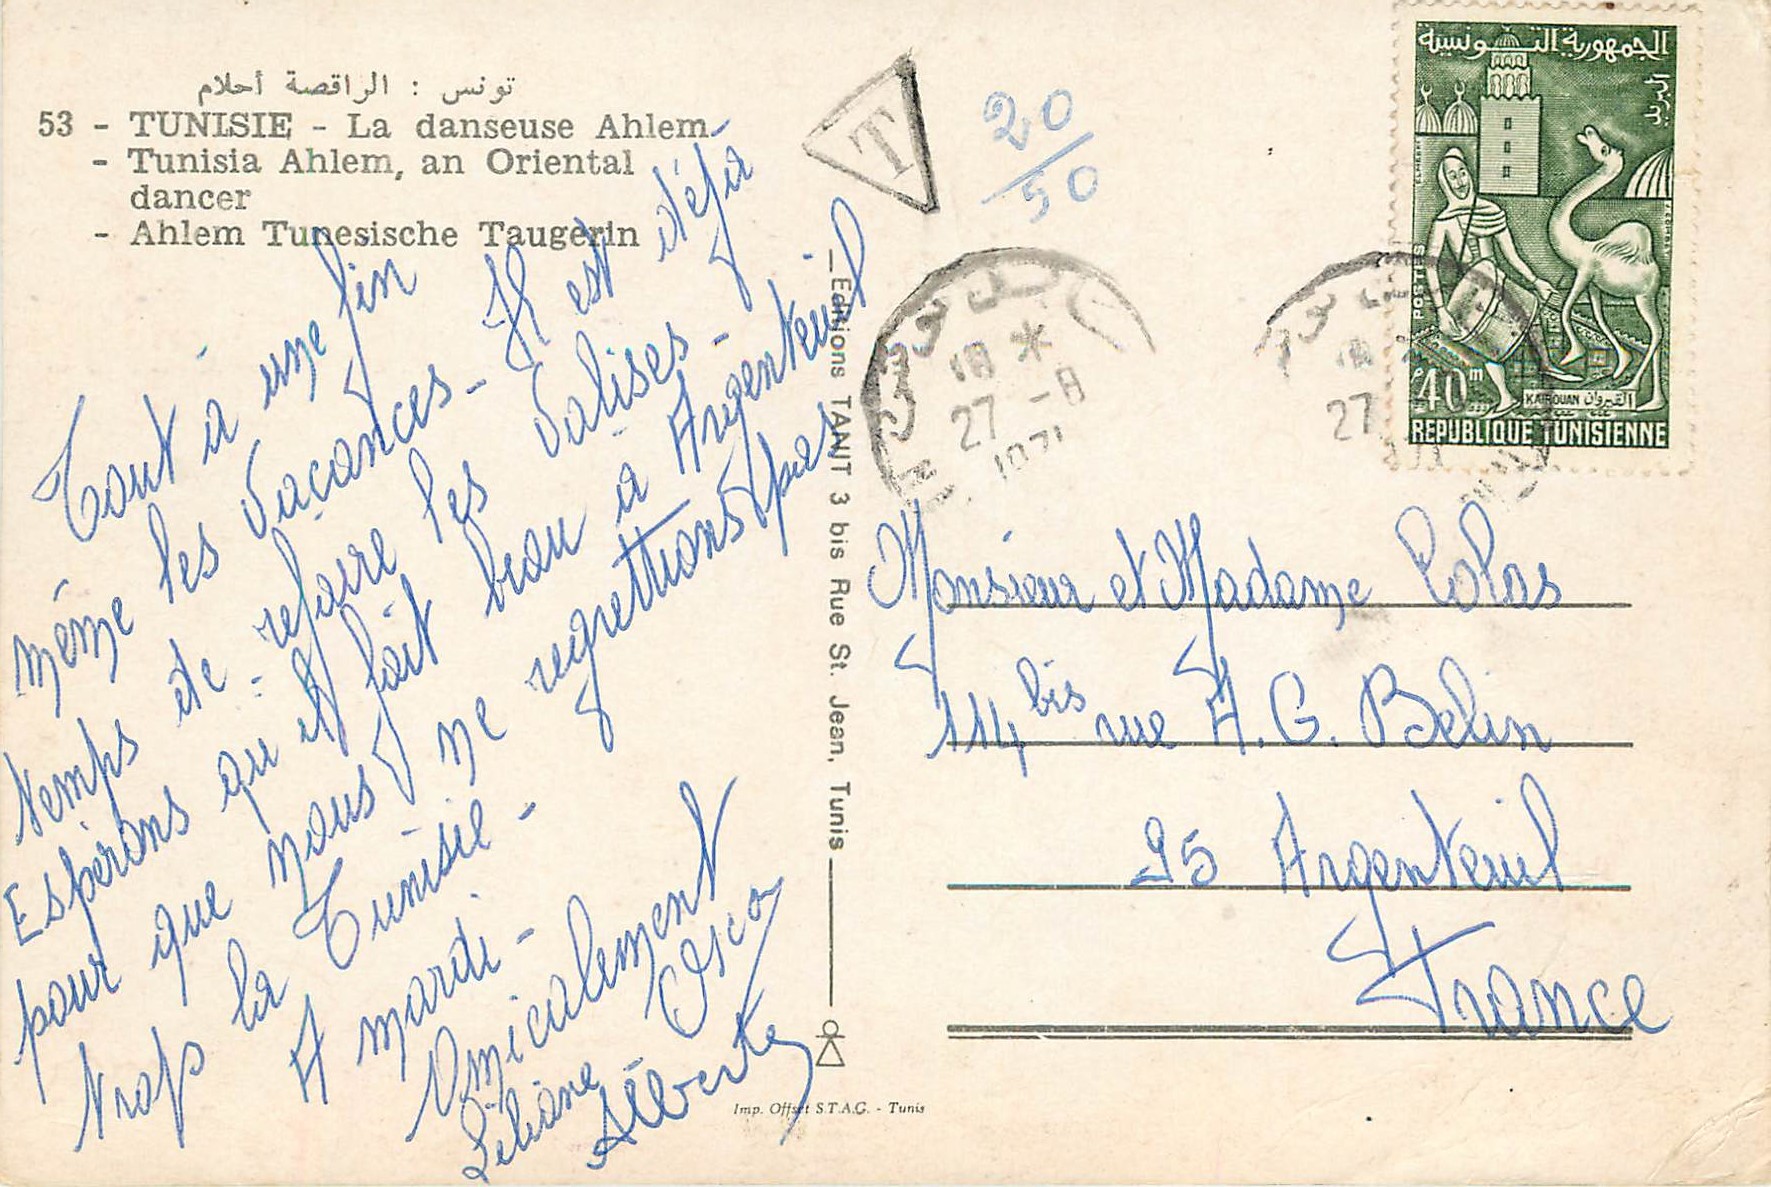 تونس : الراقصة أحلام
53 - TUNISIE - La danseuse Ahlem
- Tunisia Ahlem, an Oriental
dancer
- Ahlem Tunesische Taugerin
Tout à une fin
même les vacances - Il est déjà
temps de refaire les valises -
Espérons qu'il fait beau à Argenteuil
pour que nous ne regrettions pas
trop la Tunisie -
A mardi -
Amicalement
Liliane
Oscar
Alberte
Editions TANT 3 bis Rue St. Jean, Tunis
Imp. Offset S.T.A.G. - Tunis
T
20
50
18 *
27 - 8
1971
18
27
الجمهورية التونسية
البريد
POSTES
40m
KAIROUAN القيروان
REPUBLIQUE TUNISIENNE
Monsieur et Madame Colas
114 bis rue A. G. Belin
95 Argenteuil
France